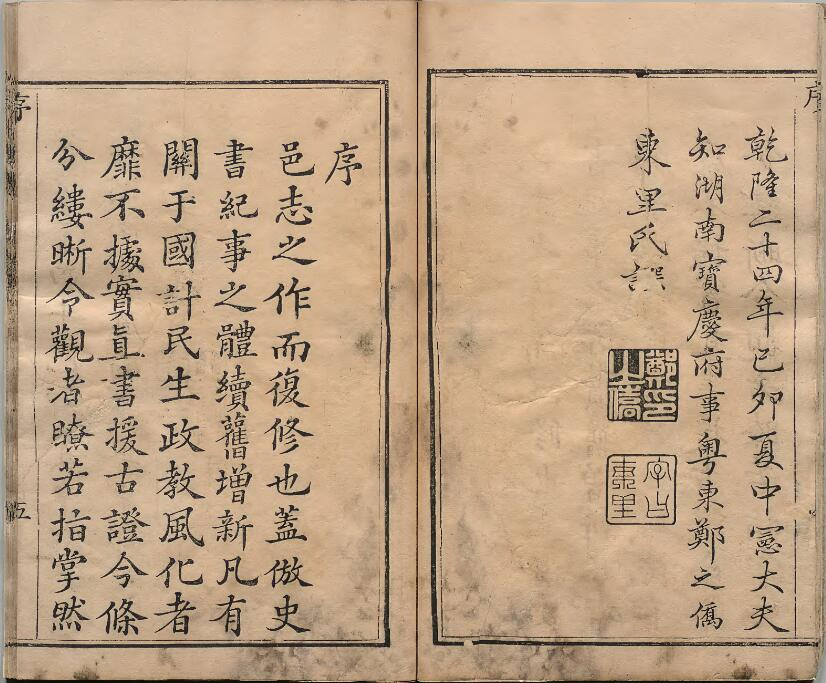 序
乾隆二十四年己卯夏中憲大夫
知湖南寶慶府事粵東鄭之僑
東里氏譔
鄭印之僑
字曰東里
序
邑志之作而復修也蓋倣史
書紀事之體續舊增新凡有
關于國計民生政教風化者
靡不據實直書援古證今條
分縷晰令觀者瞭若指掌然
序
五